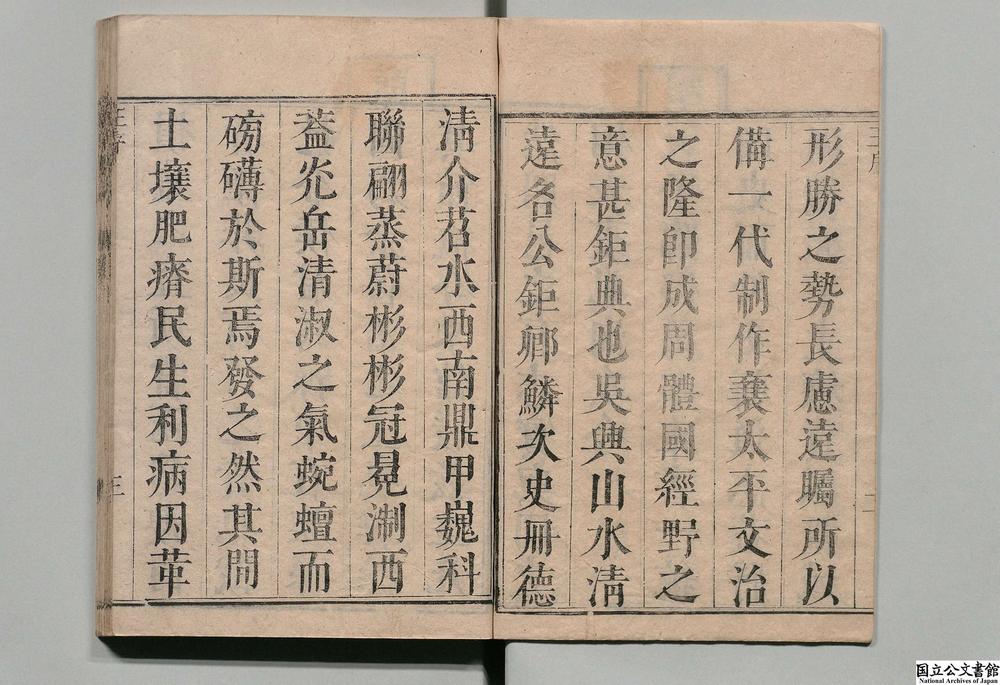 形勝之勢長慮遠矚所以
備一代制作襄太平文治
之隆卽成周體國經野之
意甚鉅典也吳興山水淸
遠名公鉅卿鱗次史冊德
淸介苕水西南鼎甲巍科
聯翩蒸蔚彬彬冠冕淛西
葢光岳清淑之氣蜿蟺而
磅礴於斯焉發之然其間
土壤肥瘠民生利病因革
国立公文書館
National Archives of Japan